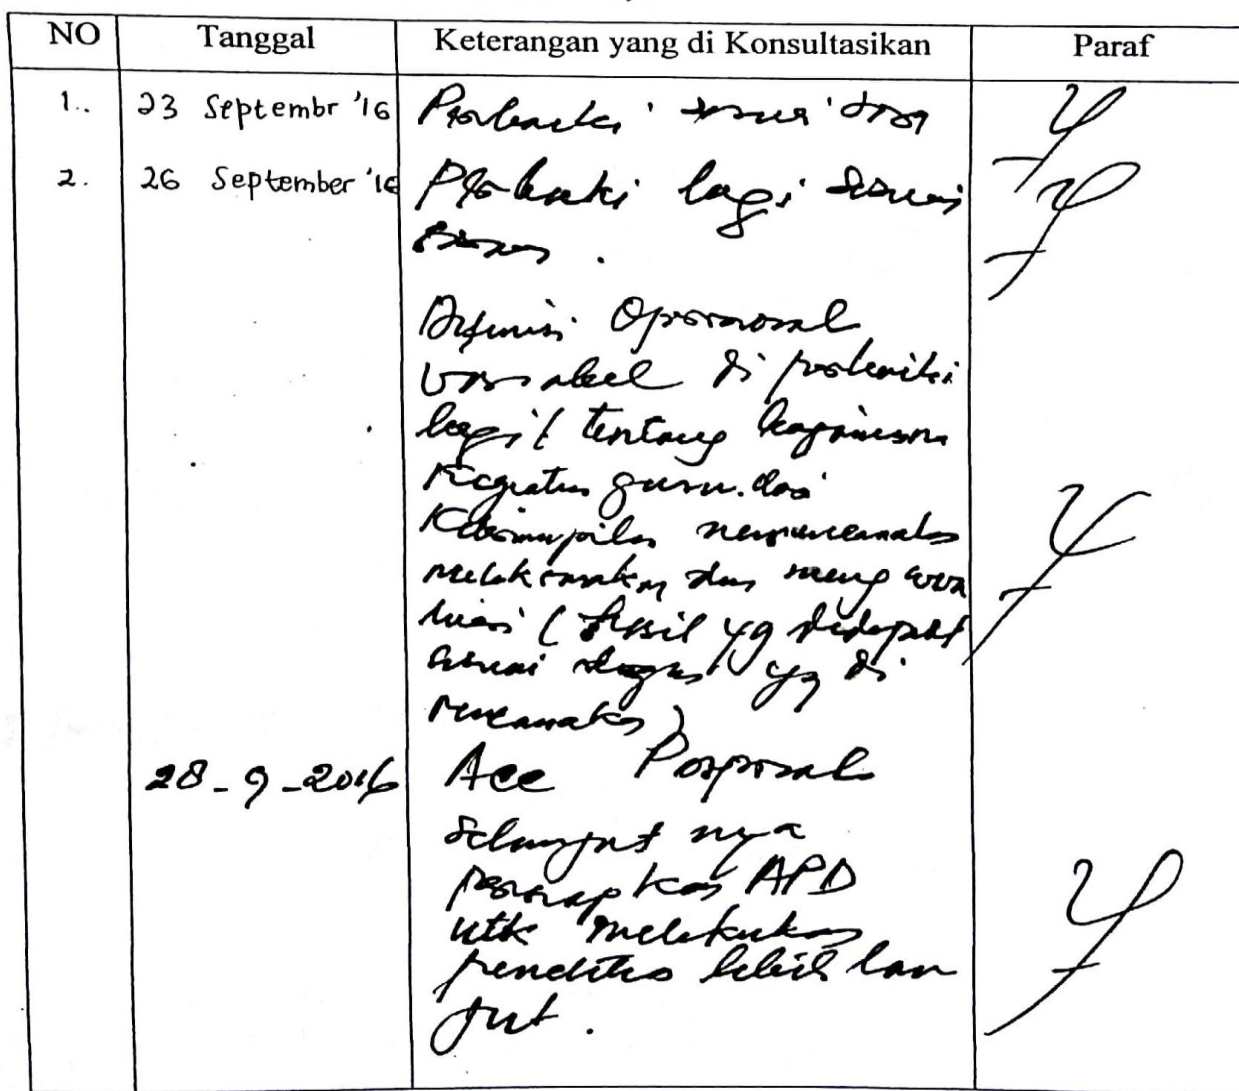 NO Tanggal Keterangan yang di Konsultasikan Paraf
1.. 23 Septembr '16 Perbaiki sesuai
2. 26 September '16 Perbaiki lagi sesuai
Definisi Operasional
variabel di perbaiki
lagi ( tentang bagaimana
Kegiatan guru. dari
Ketrampilan merencanakan
melaksanakan dan meng eva
luasi ( hasil yg didapat
sesuai dengan yg di
rencanakan )
28-9-2016 Acc Proposal
Selanjut nya
persiapkan APD
utk melakukan
penelitian lebih lan
jut .